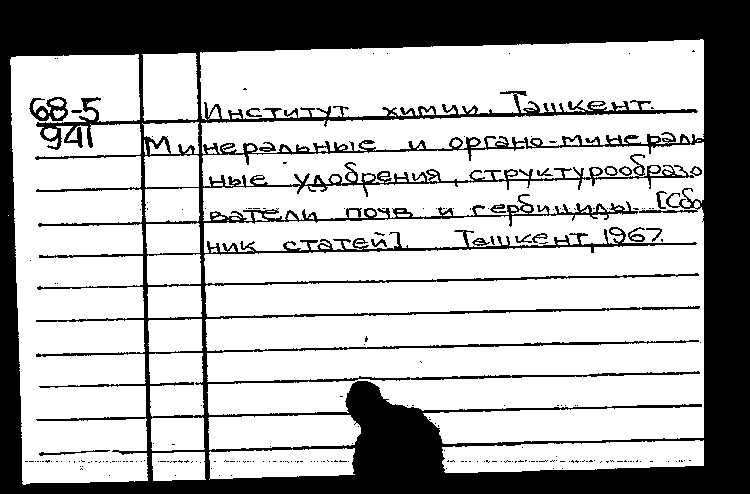 68-5
941
Институт химии. Ташкент.
Минеральные и органо-минераль
ные удобрения, структурообразо
ватели почв и гербициды. [Сбор
ник статей]. Ташкент, 1967.